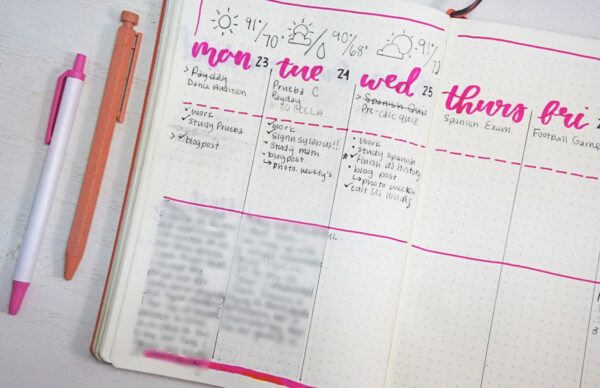 91°/70°
90°/68°
91°
mon 23
> Payday
Dance Audition
work
study Prueba
> blogpost
tue 24
Prueba C
Payday
3:30
work
sign syllabus!!
study math
blogpost
↳ photo. weekly's
wed 25
> Spanish Quiz
Pre-calc quiz
work
study spanish
finish US History
blog post
↳ photo weekly
US History
thurs
Spanish Exam
fri
Football Game